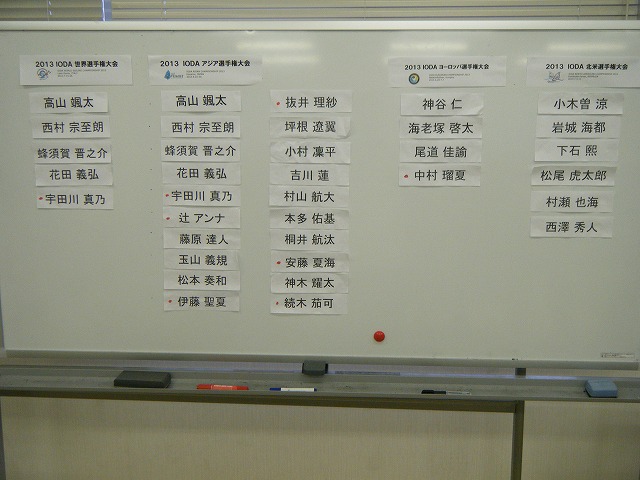 2013 IODA 世界選手権大会
高山 颯太
西村 宗至朗
蜂須賀 晋之介
花田 義弘
宇田川 真乃
2013 IODA アジア選手権大会
高山 颯太
西村 宗至朗
蜂須賀 晋之介
花田 義弘
宇田川 真乃
辻 アンナ
藤原 達人
玉山 義規
松本 奏和
伊藤 聖夏
抜井 理紗
坪根 遼翼
小村 凜平
吉川 蓮
村山 航大
本多 佑基
桐井 航汰
安藤 夏海
神木 耀太
続木 茄可
2013 IODA ヨーロッパ選手権大会
神谷 仁
海老塚 啓太
尾道 佳諭
中村 瑠夏
2013 IODA 北米選手権大会
小木曽 涼
岩城 海都
下石 熙
松尾 虎太郎
村瀬 也海
西澤 秀人